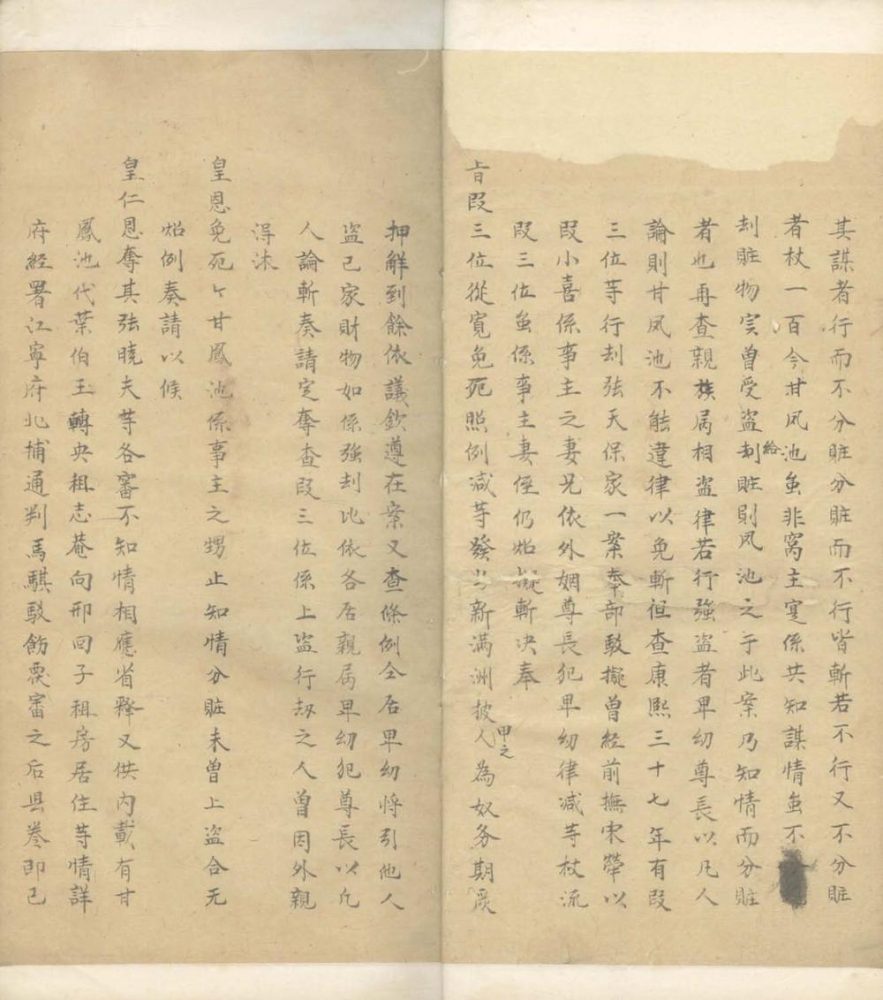 其謀者行而不分賍分賍而不行皆斬若不行又不分賍
者杖一百今甘凤池虽非窝主寔係共知謀情虽不
刦賍物实曾受盗刦給賍則凤池之于此案乃知情而分賍
者也再查親族属相盗律若行強盗者卑幼尊長以凡人
論則甘凤池不能違律以免斬但查康熙三十七年有叚
三位等行刦張天保家一案奉部駁擬曾經前撫宋犖以
叚小喜係事主之妻兄依外姻尊長犯卑幼律减等杖流
叚三位虽係事主妻侄仍炤擬斬决奉
㫖叚三位從寛免死照例减等發与新满洲披甲之人為奴务期嚴
押解到餘依議欽遵在案又查條例仝居卑幼将引他人
盗己家財物如係強刦比依各居親属卑幼犯尊長以凡
人論斬奏請定奪查叚三位係上盗行刼之人曾因外親
淂沐
皇恩免死今甘鳳池係事主之甥止知情分賍未曾上盗合无
炤例奏請以候
皇仁恩奪其張曉夫等各審不知情相應省釋又供内載有甘
鳳池代葉伯玉轉央租志菴向邢回子租房居住等情詳
府經署江寧府北捕通判馬騏駁飭覆審之后具卷即已